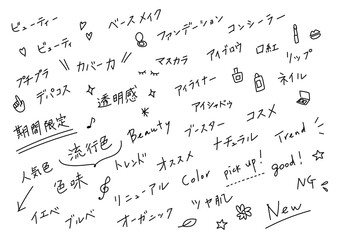 ビューティー ♡ ベースメイク ファンデーション コンシーラー
♡ ビューティ カバー力 マスカラ アイブロウ 口紅 リップ
プチプラ デパコス 透明感 アイライナー ネイル
期間限定 アイシャドウ コスメ
流行色 Beauty ブースター ナチュラル Trend
人気色 色味 トレンド オススメ Color pick up! good!
イエベ ブルベ リニューアル ツヤ肌 NG
オーガニック New